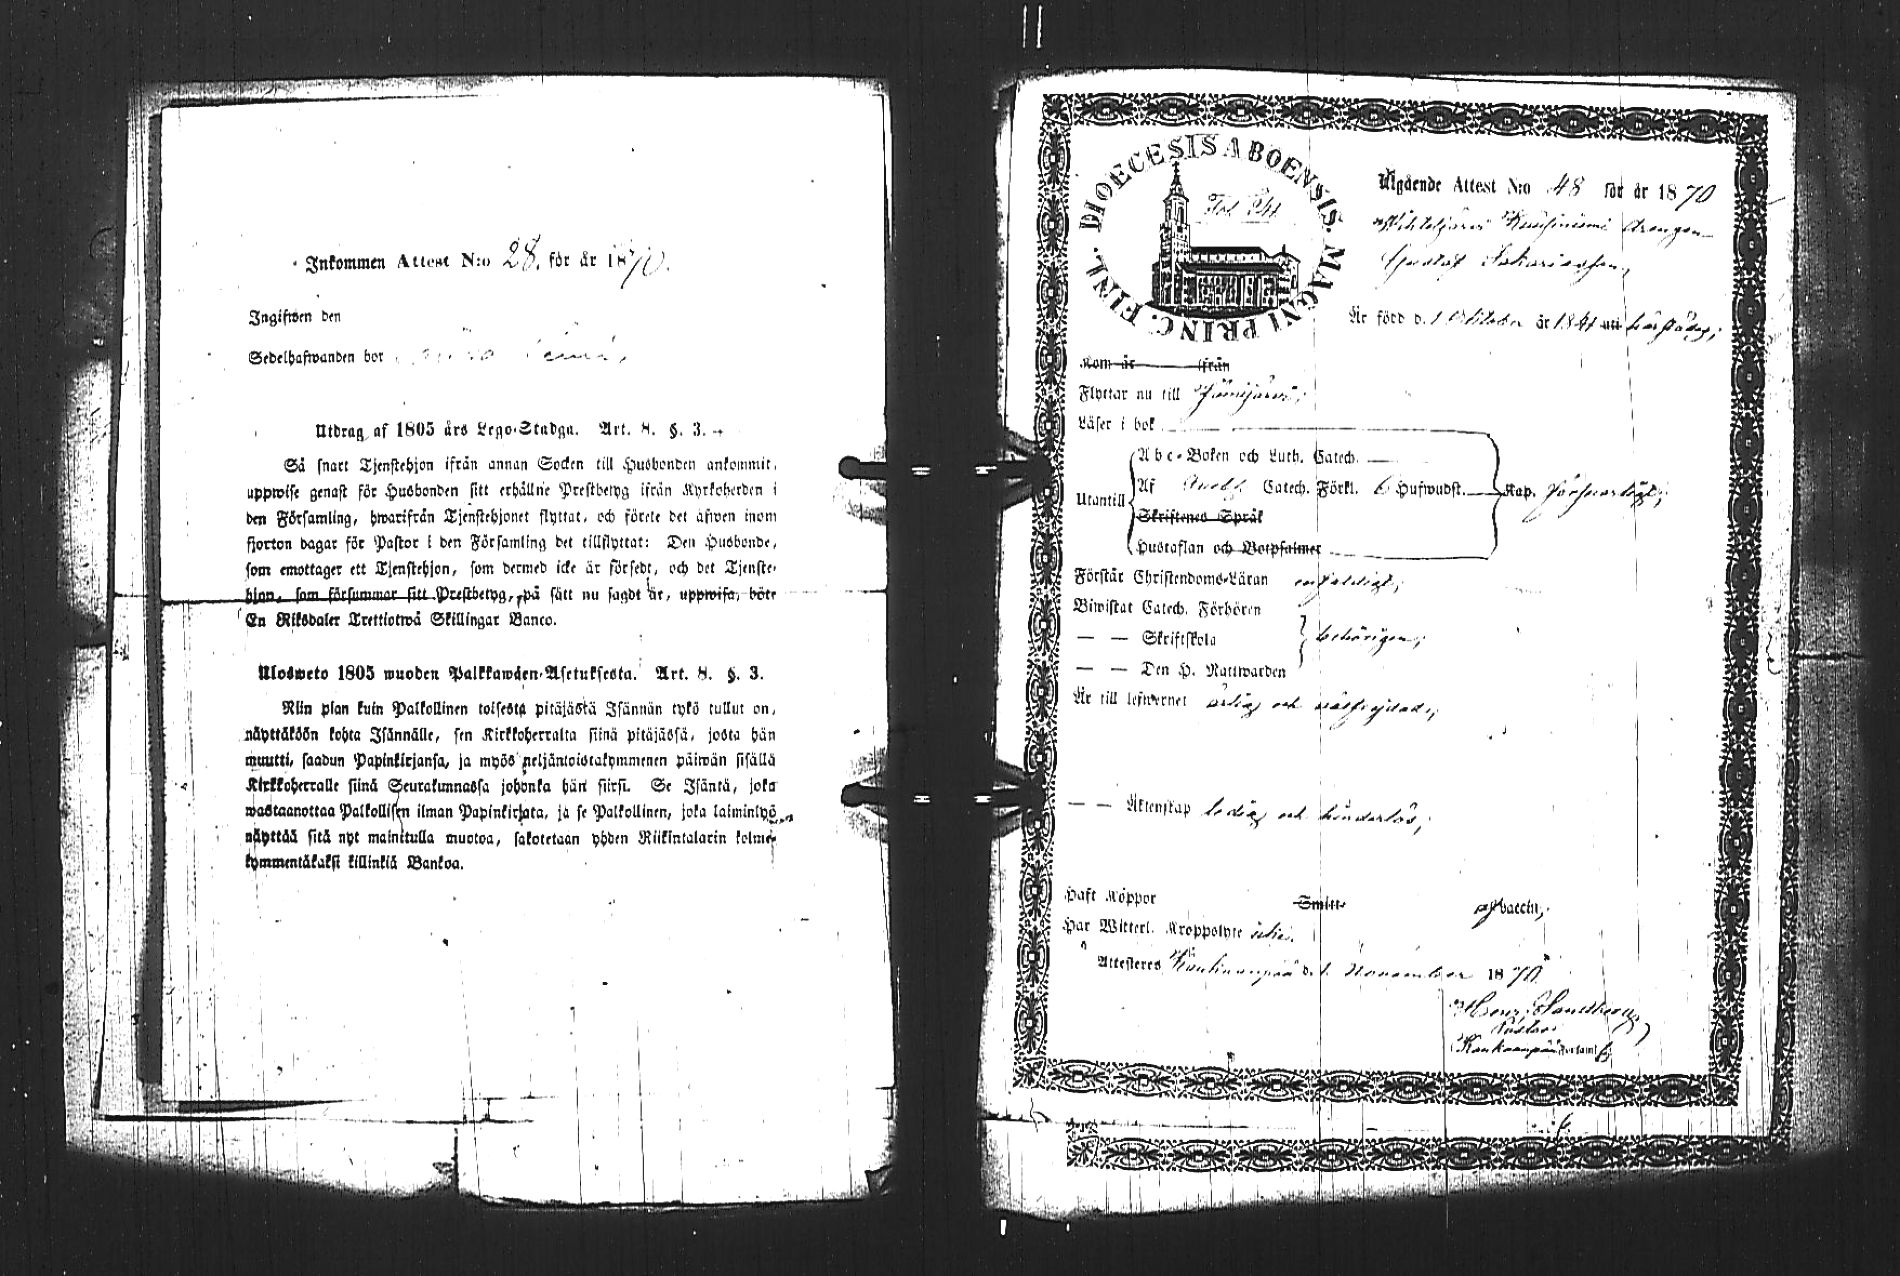 Inkommen Attest N:o 28. för år 1870.
Ingifwen den
Sedelhafwanden bor
Utdrag af 1805 års Lego-Stadga. Art. 8. §. 3.
Så snart Tjenstehjon ifrån annan Socken till Husbonden ankommit,
uppwise genast för Husbonden sitt erhållne Prestbetyg ifrån Kyrkoherden i
den Församling, hwarifrån Tjenstehjonet flyttat, och förete det äfwen inom
fjorton dagar för Pastor i den Församling det tillflyttat: Den Husbonde,
som emottager ett Tjenstehjon, som dermed icke är försedt, och det Tjenste-
hjon, som försummar sitt Prestbetyg, på sätt nu sagdt är, uppwisa, böte
En Riksdaler Trettiotwå Skillingar Banco.
Ulosweto 1805 wuoden Palkkawäen-Asetuksesta. Art. 8. §. 3.
Niin pian kuin Palkollinen toisesta pitäjästä Isännän tykö tullut on,
näyttäköön kohta Isännälle, sen Kirkkoherralta siinä pitäjässä, josta hän
muutti, saadun Papinkirjansa, ja myös neljäntoistakymmenen päiwän sisällä
Kirkkoherralle siinä Seurakunnassa johonka hän siirsi. Se Isäntä, joka
wastaanottaa Palkollisen ilman Papinkirjata, ja se Palkollinen, joka laiminlyö
näyttää sitä nyt mainitulla muotoa, sakotetaan yhden Riikintalarin kolme-
kymmentäkaksi killinkiä Bankoa.
DIOECESIS ABOENSIS. MAGNI PRINC. FINL.
Utgående Attest N:o 48 för år 1870
Drengen
Gustaf
Är född d. 1 Oktober år 1841 uti härstädes;
Kom år ifrån
Flyttar nu till Jämijärvi;
Läser i bok
Utantill
Abc-Boken och Luth. Catech.
Af Catech. Förkl. 6 Hufwudst. Kap. försvarligt;
Skriftenes Språk
Hustaflan och Botpsalmer
Förstår Christendoms-Läran enfaldigt;
Biwistat Catech. Förhören
— — Skriftskola behörigen;
— — Den H. Nattwarden
Är till lefwernet ärlig och välfrejdad;
— — Äktenskap ledig och hinderlös;
Haft Koppor Smitt- vaccin;
Har Witterl. Kroppslyte icke.
Attesteras Kankaanpää d. 1 November 1870
Henr. Sandberg
Pastor
Kankaanpää Församl.